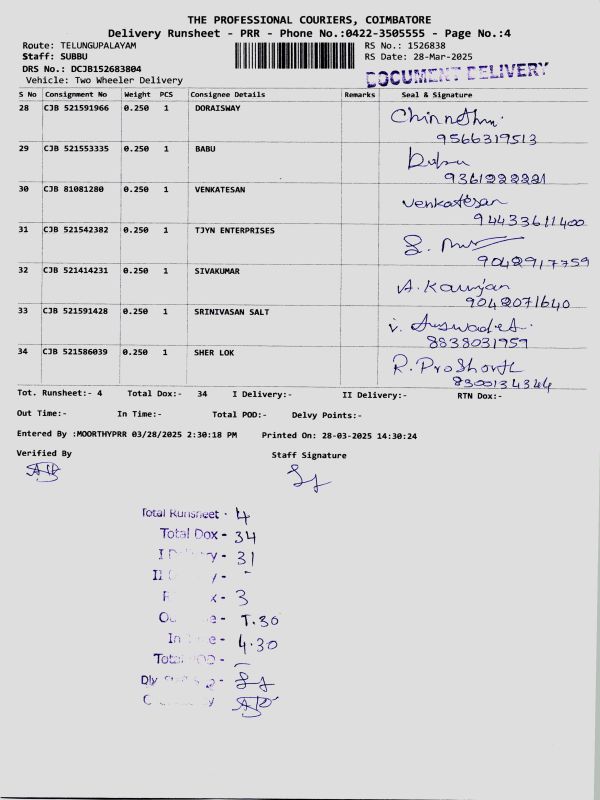 THE PROFESSIONAL COURIERS, COIMBATORE
Delivery Runsheet - PRR - Phone No.:0422-3505555 - Page No.:4
Route: TELUNGUPALAYAM RS No.: 1526838
Staff: SUBBU RS Date: 28-Mar-2025
DRS No.: DCJB152683804
Vehicle: Two Wheeler Delivery
DOCUMENT DELIVERY
S No Consignment No Weight PCS Consignee Details Remarks Seal & Signature
28 CJB 521591966 0.250 1 DORAISWAY
9566319513
29 CJB 521553335 0.250 1 BABU Babu
9361222221
30 CJB 81081280 0.250 1 VENKATESAN venkatesan
94433611400
31 CJB 521542382 0.250 1 TJYN ENTERPRISES
9042917759
32 CJB 521414231 0.250 1 SIVAKUMAR
9042071640
33 CJB 521591428 0.250 1 SRINIVASAN SALT
8838031959
34 CJB 521586039 0.250 1 SHER LOK
Tot. Runsheet:- 4 Total Dox:- 34 I Delivery:- II Delivery:- RTN Dox:-
Out Time:- In Time:- Total POD:- Delvy Points:-
Entered By :MOORTHYPRR 03/28/2025 2:30:18 PM Printed On: 28-03-2025 14:30:24
Verified By Staff Signature
Total Runsheet - 4
Total Dox - 34
31
3
4.30